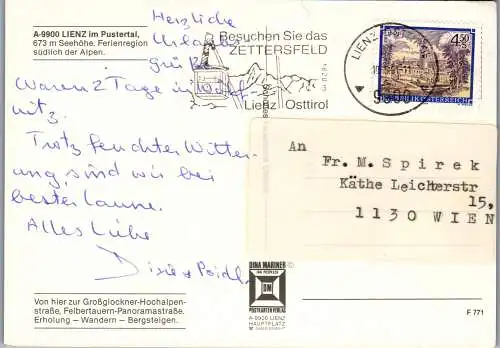 A-9900 LIENZ im Pustertal,
673 m Seehöhe. Ferienregion
südlich der Alpen.
Herzliche
Urlaubs
grüße
Waren 2 Tage in
nitz.
Trotz feuchter Witter-
ung, sind wir bei
bester Laune.
Alles Liebe
Besuchen Sie das
ZETTERSFELD
1820 m
Lienz Osttirol
LIENZ
9900
4.50 S
REPUBLIK ÖSTERREICH
An
Fr. M. Spirek
Käthe Leicherstr
15,
1130 WIEN
Von hier zur Großglockner-Hochalpen-
straße, Felbertauern-Panoramastraße.
Erholung – Wandern – Bergsteigen.
DINA MARINER
DM
POSTKARTENVERLAG
A-9900 LIENZ
HAUPTPLATZ
F 771